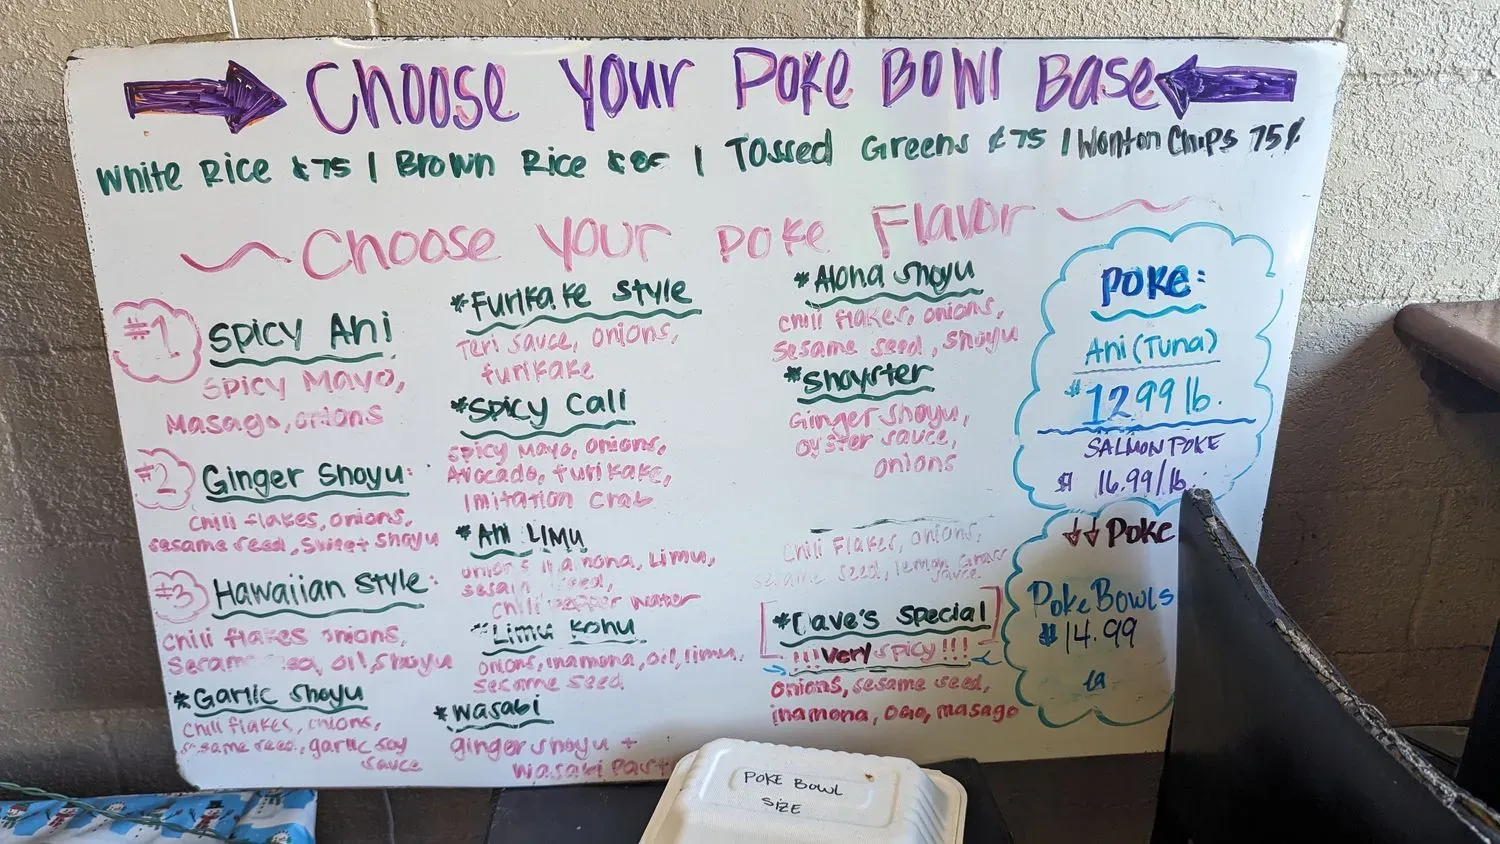 Choose Your Poke Bowl Base
White Rice ¢75 | Brown Rice | Tossed Greens ¢75 | Wonton Chips 75¢
Choose Your Poke Flavor
#1 Spicy Ahi
Spicy Mayo,
Masago, onions
#2 Ginger Shoyu:
Chili flakes, onions,
sesame seed, Sweet Shoyu
#3 Hawaiian Style:
Chili flakes onions,
Sesame oil, Shoyu
*Garlic Shoyu
Chili flakes, onions,
sesame seed, garlic soy
sauce
*Furikake Style
Teri sauce, onions,
furikake
*Spicy Cali
Spicy Mayo, onions,
Avocado, furikake,
Imitation Crab
*Ahi LIMU
onions inamona, Limu,
chili pepper water
*Limu Kohu
onions, inamona, oil, limu,
sesame seed
*Wasabi
ginger shoyu +
Wasabi
*Aloha Shoyu
Chili flakes, onions,
Sesame seed, Shoyu
*Shoyster
Ginger Shoyu,
oyster sauce,
onions
Chili Flakes, onions,
sesame seed, lemon Grass
sauce
*Dave's Special
!!!Very spicy!!!
onions, sesame seed,
inamona, Ogo, masago
POKE:
Ahi (Tuna)
$12.99 lb.
SALMON POKE
$ 16.99/lb.
Poke
Poke Bowls
$14.99
ea
POKE BOWL
SIZE